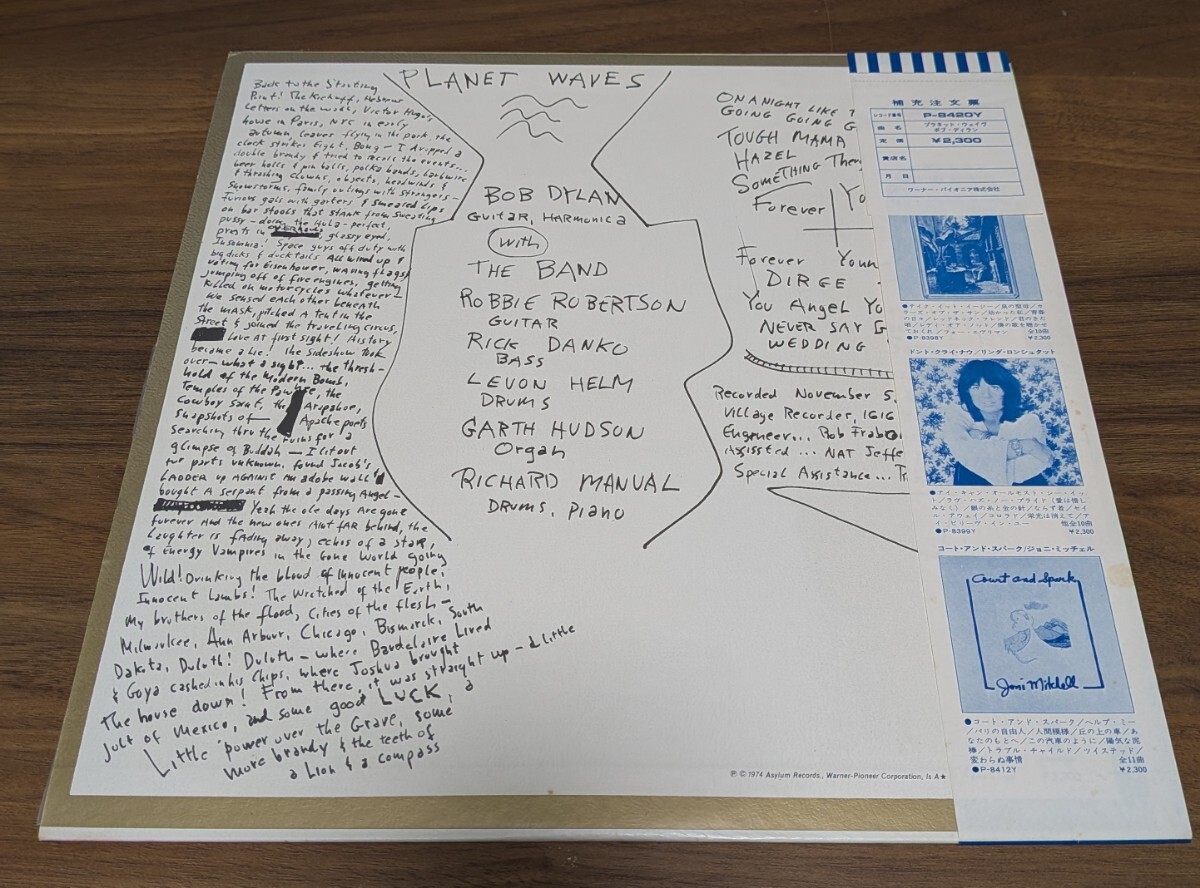 Back to the Starting
Point! The Kickoff, Hebrew
Letters on the wall, Victor Hugo's
house in Paris, NYC in early
autumn, leaves flying in the park, the
clock strikes Eight, Bong — I dropped a
double brandy & tried to recall the events...
beer halls & pin balls, polka bands, barbwire
& thrashing clowns, objects, headwinds &
Snowstorms, family outings with strangers —
Furious gals with garters & smeared Lips
on bar stools that stank from sweating
pussy — doing the Hula — perfect,
priests in glassy eyed,
Insomnia! Space guys off duty with
big dicks & ducktails All wired up &
voting for Eisenhower, waving flags &
jumping off of fire engines, getting
killed on motorcycles whatever —
We sensed each other beneath
the mask, pitched a tent in the
Street & joined the traveling circus,
Love at first sight! History
became a Lie! The sideshow took
over — what a sight... the thresh-
hold of the Modern Bomb,
Temples of the Pawnee, the
Cowboy saint, the Arapahoe,
snapshots of — Apache poets
searching thru the ruins for a
glimpse of Buddah — I lit out
for parts unknown, found Jacob's
LADDER up AGAINST an adobe wall &
bought A serpent from a passing Angel —
Yeah the ole days Are gone
forever And the new ones Aint fAR behind, the
Laughter is fAding away, echos of a staR,
of Energy Vampires in the Gone World going
Wild! Drinking the blood of Innocent people,
Innocent Lambs! The Wretched of the Earth,
My brothers of the flood, Cities of the flesh —
Milwaukee, Ann Arbour, Chicago, Bismarck, South
Dakota, Duluth! Duluth — where Baudelaire Lived
& Goya cashed in his Chips, where Joshua brought
the house down! From there, it was straight up — a Little
jolt of Mexico, and some good LUCK, a
Little power over the Grave, some
more brandy & the teeth of
a Lion & a compass
PLANET WAVES
BOB DYLAN
Guitar, Harmonica
With
THE BAND
RObbIE ROBERTSON
GUITAR
RICK DANKO
BASS
LEVON HELM
DRUMS
GARTH HUDSON
Organ
RICHARD MANUAL
DRUMS, piano
ON A NIGHT LIKE T
GOING GOING G
TOUGH MAMA
HAZEL
SOMETHING There
Forever Yo
Forever Youn
DIRGE
You Angel Yo
NEVER SAY G
WEDDING
Recorded November 5,
Village Recorder, 1616
Engineer... Rob Frabo
Assissted ... NAT Jeffe
Special Assistance...
Ⓟ © 1974 Asylum Records., Warner-Pioneer Corporation, Is A★
補充注文票
レコード番号 P-8420Y
曲名 プラネット・ウェイヴ
ボブ・ディラン
定価 ¥2,300
貴店名
月日
ワーナー・パイオニア株式会社
●P-8398Y ¥2,300
ドント・クライ・ナウ/リンダ・ロンシュタット
●P-8399Y ¥2,300
コート・アンド・スパーク/ジョニ・ミッチェル
Court and Spark
Joni Mitchell
●コート・アンド・スパーク/ヘルプ・ミー
/パリの自由人/人間模様/丘の上の車/あ
なたのもとへ/この汽車のように/陽気な泥
棒/トラブル・チャイルド/ツイステッド/
変わらぬ事情 全11曲
●P-8412Y ¥2,300